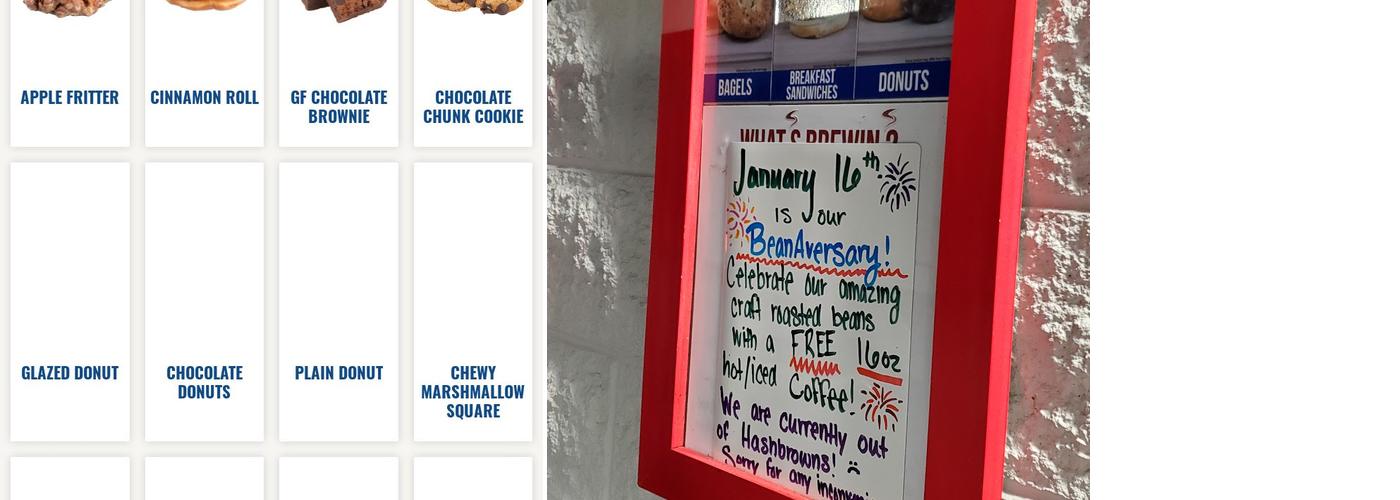 APPLE FRITTER
CINNAMON ROLL
GF CHOCOLATE
BROWNIE
CHOCOLATE
CHUNK COOKIE
GLAZED DONUT
CHOCOLATE
DONUTS
PLAIN DONUT
CHEWY
MARSHMALLOW
SQUARE
BAGELS
BREAKFAST
SANDWICHES
DONUTS
WHAT'S BREWIN'?
January 16th
is our
BeanAversary!
Celebrate our amazing
craft roasted beans
with a FREE 16oz
hot/iced Coffee!
We are currently out
of Hashbrowns! :(
Sorry for any